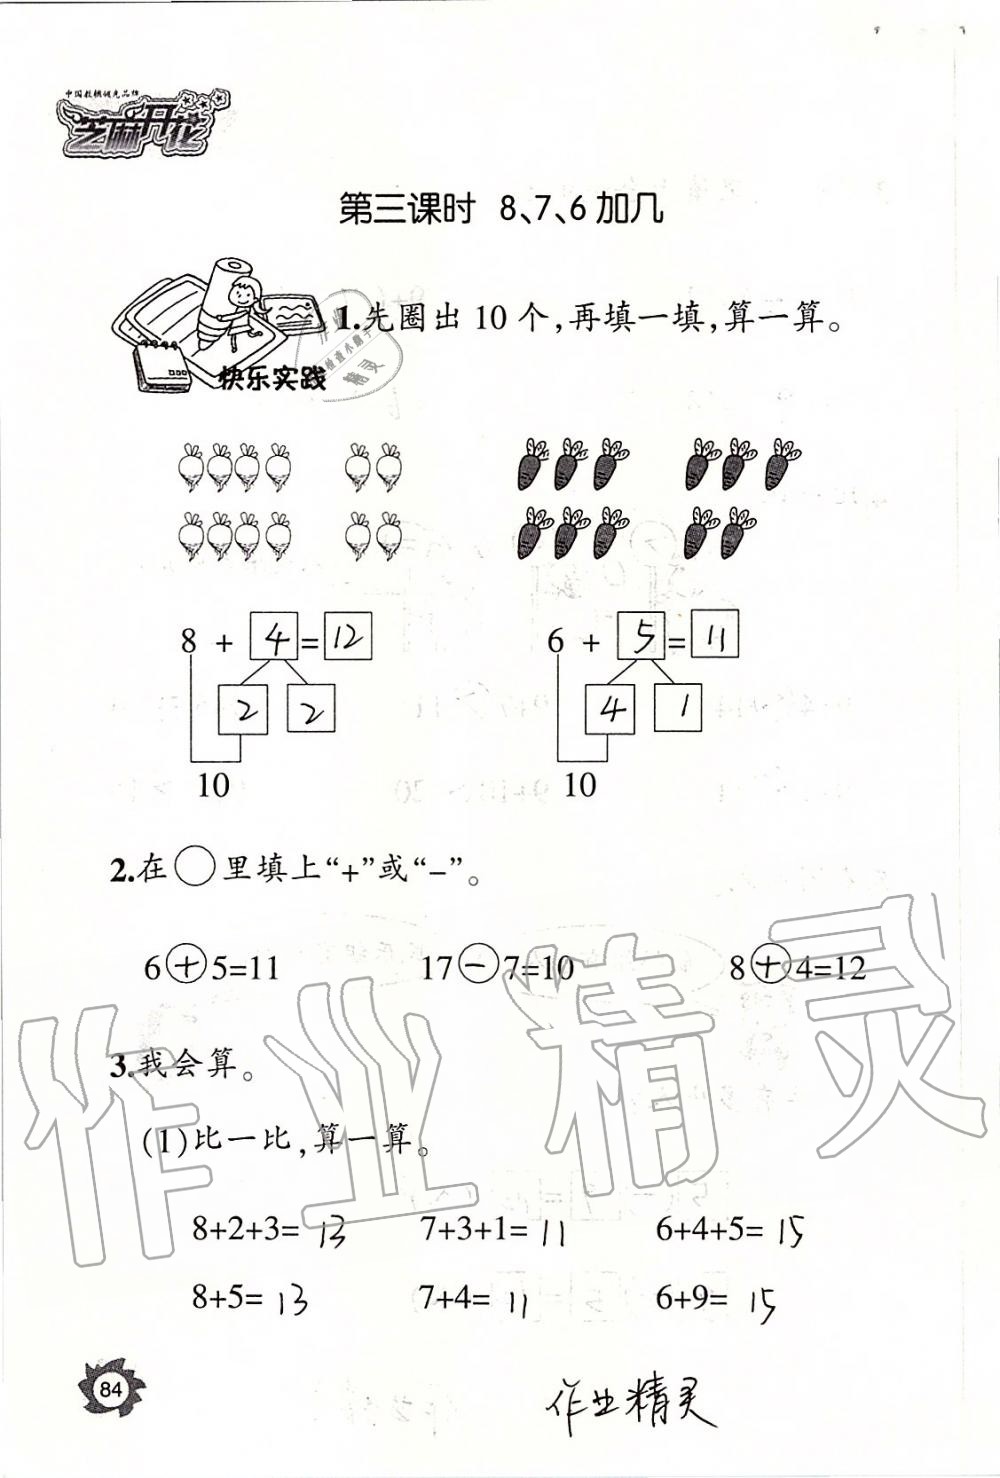 中国教辅领先品牌
芝麻开花
第三课时 8、7、6加几
快乐实践
1.先圈出10个,再填一填,算一算。
8 + 4 = 12
2 2
10
6 + 5 = 11
4 1
10
2.在○里填上“+”或“-”。
6+5=11 17-7=10 8+4=12
3.我会算。
(1)比一比,算一算。
8+2+3= 13 7+3+1= 11 6+4+5= 15
8+5= 13 7+4= 11 6+9= 15
84
作业精灵
作业精灵